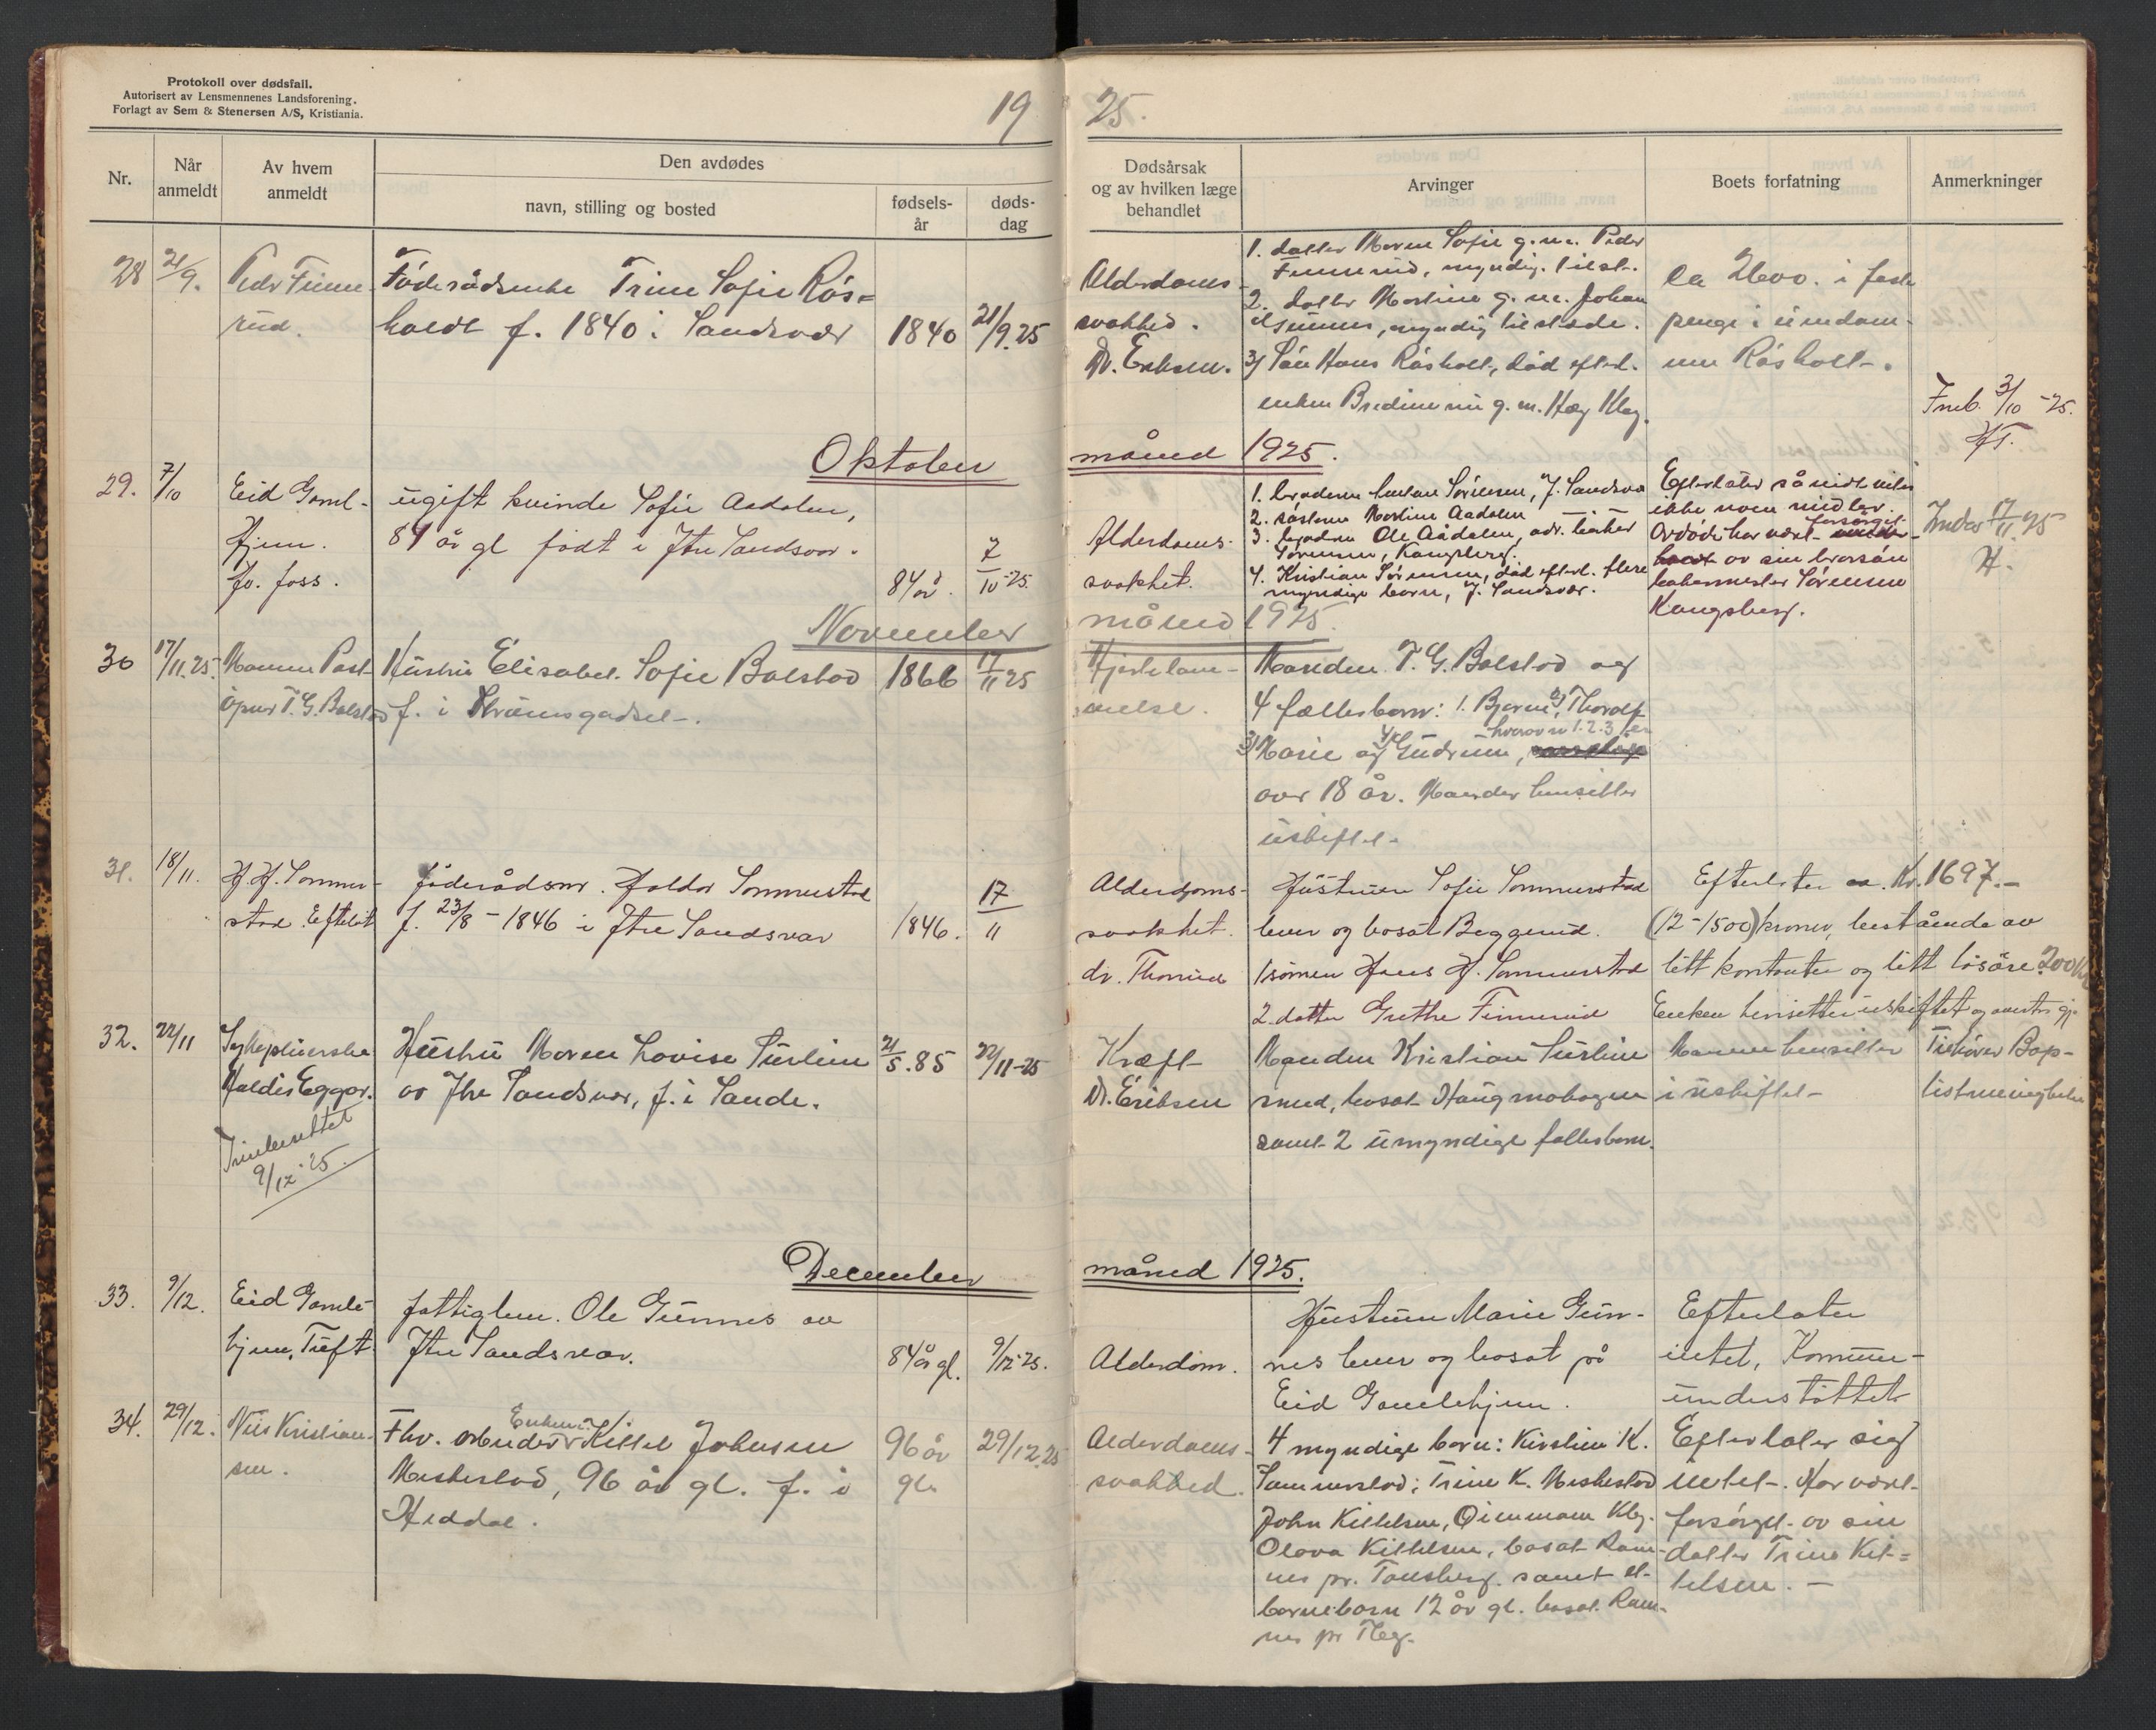 Protokoll over dødsfall.
Autorisert av Lensmennenes Landsforening.
Forlagt av Sem & Stenersen A/S, Kristiania.
19 25.
Nr.
Når anmeldt
Av hvem anmeldt
Den avdødes
navn, stilling og bosted
fødsels-år
døds-dag
Dødsårsak og av hvilken læge behandlet
Arvinger
Boets forfatning
Anmerkninger
28 21/9.
Peder Finne-
rud.
Föderådsenke Trine Sofie Rös=
holdt f. 1840 i Sandsvær
1840
21/9.25
Alderdoms-
svakhed.
Dr. Eriksen.
1. datter Maren Sofie g.m. Peder
Finnerud, myndig. tilst.
2. datter Martine g.m. Johan
myndig tilstede.
3) Sön Hans Rösholt, död efterl.
enken Bredine nu g.m. Kbg.
Ca 2600. i faste
penge i eiendom-
men Rösholt.
Innb. 3/10 -25.
Oktober måned 1925.
29. 7/10
Eid Gaml-
hjem.
fv. foss.
ugift kvinde Sofie Aadalen,
84 år gl födt i Ytre Sandsvær.
84 år.
7/10-25.
Alderdoms-
svakhet.
1. broderen Sörensen, Y. Sandsvær
2. söstren Martine Aadalen —"—
3. broderen Ole Aadalen, adr. baker
Sörensen, Kongsberg.
4. Kristian Sörensen, död efterl. flere
myndige barn, Y. Sandsvær.
Efterlater så vidt vites
ikke noen midler.
Avdöde har været forsörget
av sin brorsön
bakermester Sörensen
Kongsberg.
17/11 25
H.
November måned 1925.
30 17/11.25.
Mannen Post-
åpner T. G. Bolstad
Hustru Elisabet Sofie Bolstad
f. i Strömsgodset.
1866
17/11 25
Hjertelam-
melse.
Manden T. G. Bolstad og
4 fællesbarn: 1. Bjarne, 2) Thorolf
hvorav nr 1. 2. 3 er
3) Marie og 4) Gudrun,
over 18 år. Manden hensitter
uskiftet.
31. 18/11.
H. H. Sommer-
stad. Efteløt
föderådsm. Haldor Sommerstad
f. 23/8 - 1846 i Ytre Sandsvær
1846.
17/11
Alderdoms-
svakhet.
dr. Thorud
Hustruen Sofie Sommerstad
lever og bosat Beggerud.
1 sönnen Hans H. Sommerstad
2. datter Grethe Finnerud
Efterlater ca. Kr. 1697.—
(12-1500) kroner, bestående av
litt kontanter og litt lösöre 200 kr
Enken hensitter i uskiftet
32. 22/11
Sykepleierske
Haldis Eggar.
Innberettet
9/12 25.
Hustru Maren Lovise Surlien
av Ytre Sandsvær, f. i Sande.
21/5.85
22/11-25
Kræft
Dr. Eriksen
Manden Kristian Surlien
smed, bosat Haugmohagen
samt 2 umyndige fællesbarn.
Mannen hensitter
i uskiftet
Tilhörer Bap-
tistmenigheten
December måned 1925.
33. 9/12.
Eid Gamle-
hjem, Tuft.
fattiglem. Ole Gunnes av
Ytre Sandsvær.
84 år gl.
9/12-25.
Alderdom.
Hustruen Marie Gun-
nes lever og bosat på
Eid Gamlehjem.
Efterlater
intet, Kommune-
understöttet
34. 29/12.
Nils Kristian-
sen.
Enken
Fhv. arbeider Kittel Johnsen
Meskestad, 96 år gl. f. i
Heddal.
96 år
gl.
29/12 25
Alderdoms-
svakhed.
4 myndige barn: Kirstine K.
Sommerstad; Trine K. Meskestad
John Kittelsen, Kbg.
Olava Kittelsen, bosat Ram-
nes pr. Tönsberg. samt et
barnebarn 12 år gl. bosat Ram-
nes pr Tbg.
Efterlater sig
intet. Har været
forsörget av sin
datter Trine Kit=
telsen. —